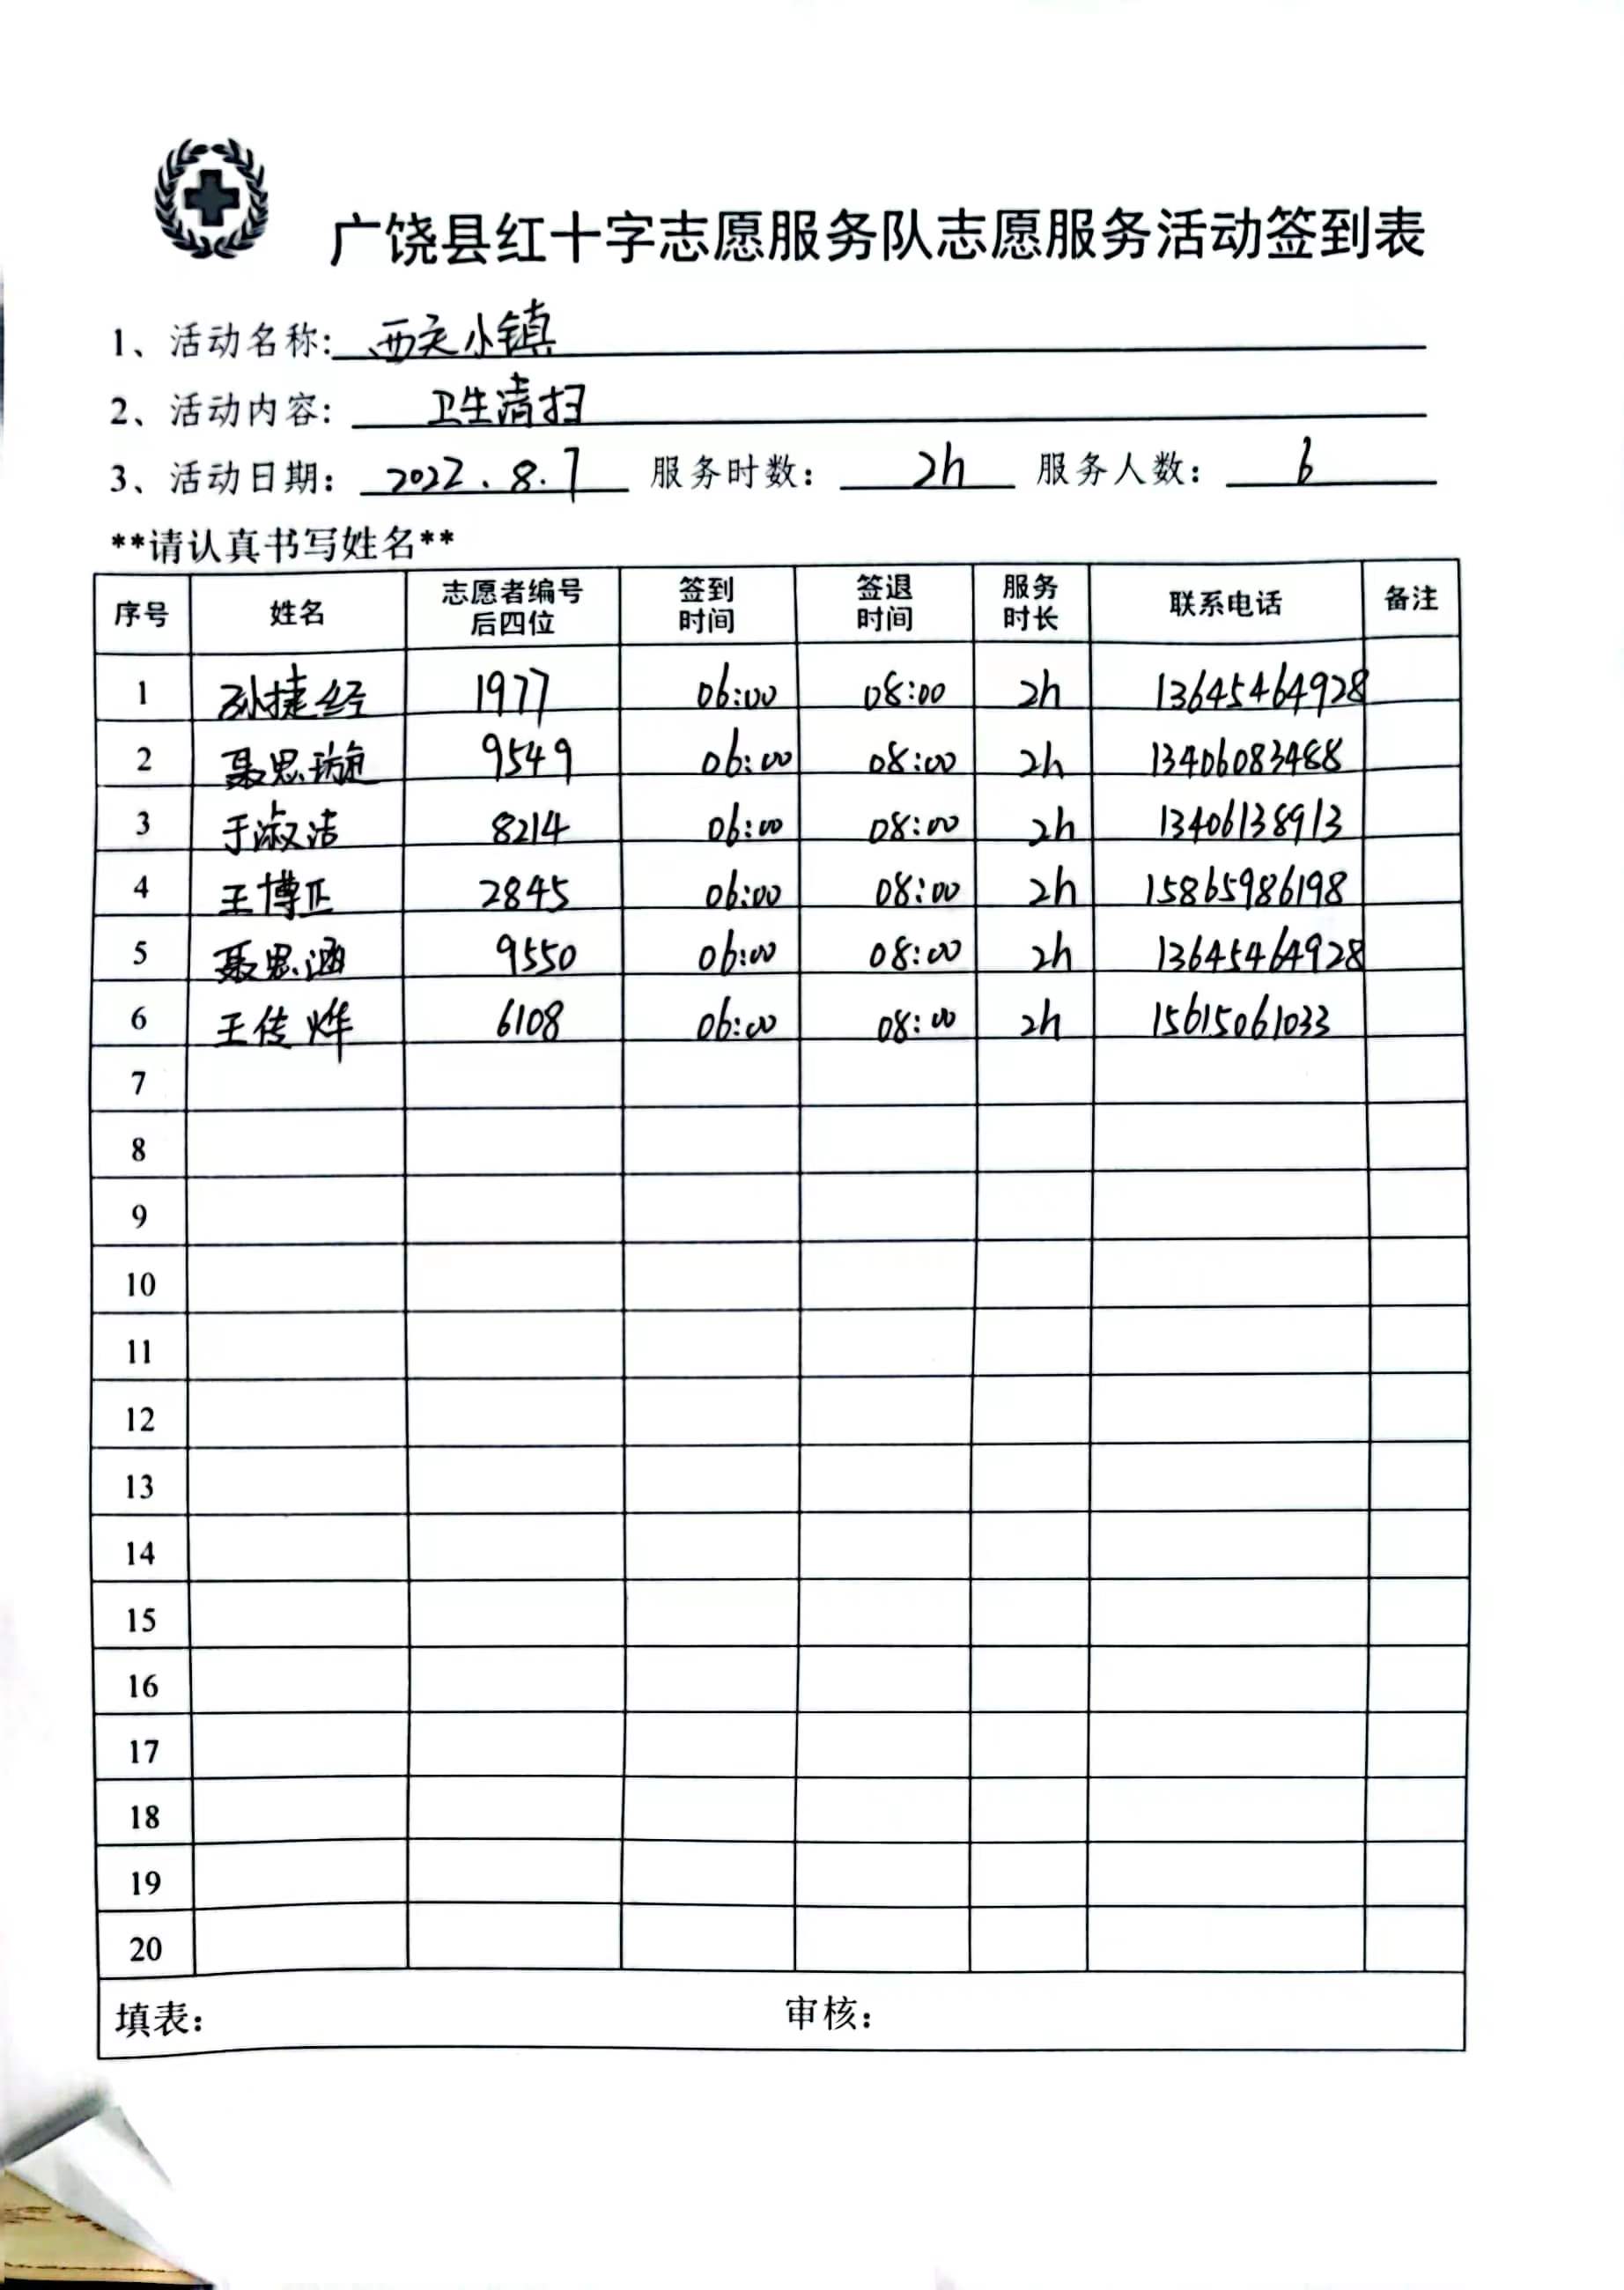 广饶县红十字志愿服务队志愿服务活动签到表
1、活动名称: 西关小镇
2、活动内容: 卫生清扫
3、活动日期: 2022.8.7 服务时数: 2h 服务人数: 6
**请认真书写姓名**
序号 姓名 志愿者编号后四位 签到时间 签退时间 服务时长 联系电话 备注
1 孙捷经 1977 06:00 08:00 2h 13645464928
2 聂思璇 9549 06:00 08:00 2h 13406083488
3 于淑洁 8214 06:00 08:00 2h 13406138913
4 王博正 2845 06:00 08:00 2h 15865986198
5 聂思涵 9550 06:00 08:00 2h 13645464928
6 王传烨 6108 06:00 08:00 2h 15615061033
7
8
9
10
11
12
13
14
15
16
17
18
19
20
填表: 审核: